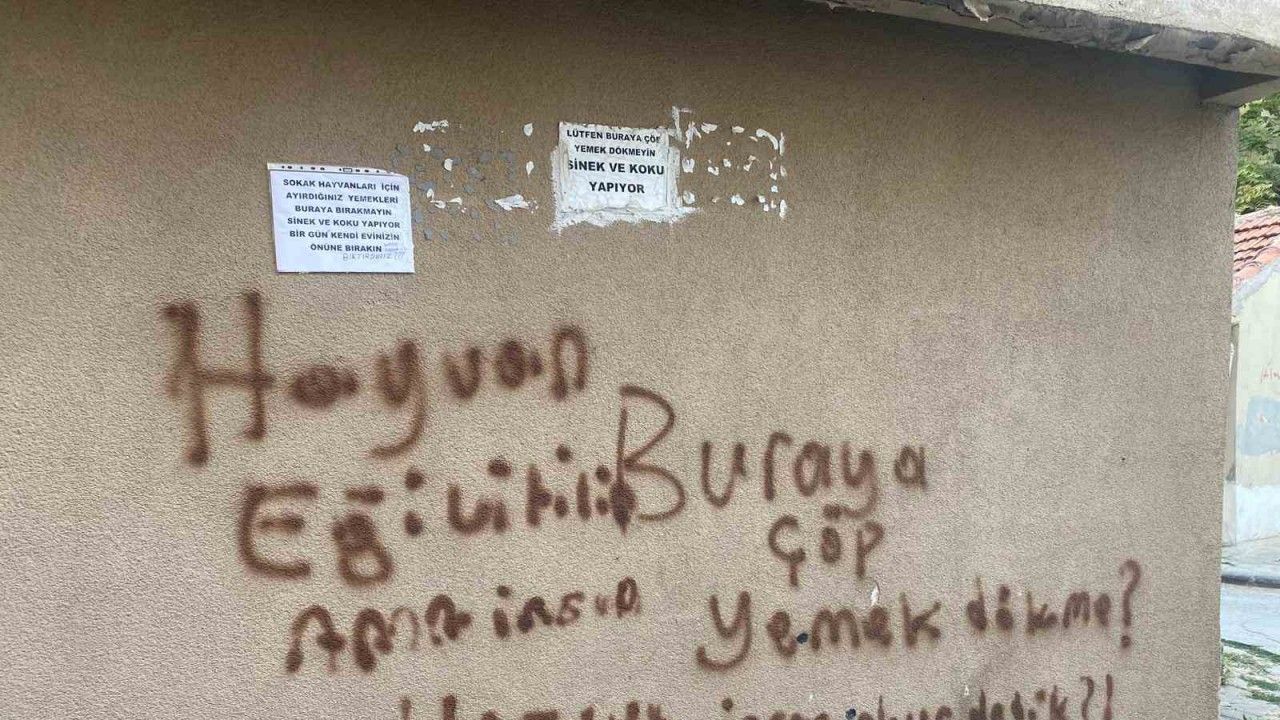 SOKAK HAYVANLARI İÇİN
AYIRDIĞINIZ YEMEKLERİ
BURAYA BIRAKMAYIN
SİNEK VE KOKU YAPIYOR
BİR GÜN KENDİ EVİNİZİN
ÖNÜNE BIRAKIN
LÜTFEN BURAYA ÇÖP
YEMEK DÖKMEYİN
SİNEK VE KOKU
YAPIYOR
Hayvan
Eğilitilir
AMA insan
Buraya
çöp
Yemek dökme?